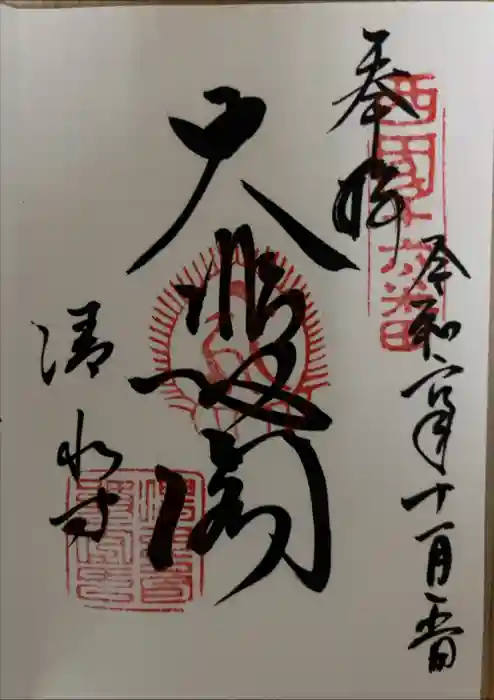 奉拝
西國十六番
令和六年十一月
大悲閣
清水寺